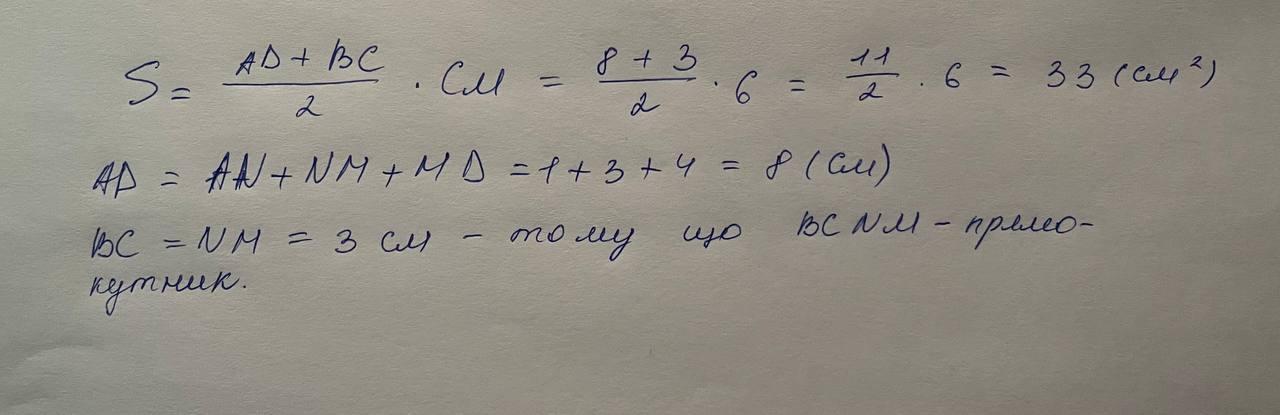 S = AD + BC / 2 · CM = 8 + 3 / 2 · 6 = 11 / 2 · 6 = 33 (см²)
AD = AN + NM + MD = 1 + 3 + 4 = 8 (см)
BC = NM = 3 см - тому що BCNM - прямо-
кутник.